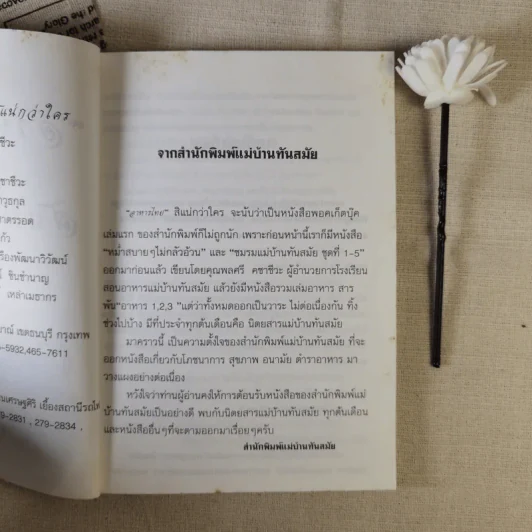 the Glory
แน่กว่าใคร
ชีวะ
ชาชีวะ
าวุธกุล
าตรรอด
แก้ว
รืองพัฒนาวิวัฒน์
ชินชำนาญ
เหล่าเมธากร
เขตธนบุรี กรุงเทพ
-5932,465-7611
นเศรษฐศิริ เยื้องสถานีรถไฟ
79-2831 , 279-2834 ,
จากสำนักพิมพ์แม่บ้านทันสมัย
"อาหารไทย" สิแน่กว่าใคร จะนับว่าเป็นหนังสือพอคเก็ตบุ๊ค
เล่มแรก ของสำนักพิมพ์ก็ไม่ถูกนัก เพราะก่อนหน้านี้เราก็มีหนังสือ
"หม่ำสบายๆไม่กลัวอ้วน" และ "ชมรมแม่บ้านทันสมัย ชุดที่ 1-5"
ออกมาก่อนแล้ว เขียนโดยคุณพลศรี คชาชีวะ ผู้อำนวยการโรงเรียน
สอนอาหารแม่บ้านทันสมัย แล้วยังมีหนังสือรวมเล่มอาหาร สาร
พัน"อาหาร 1,2,3 "แต่ว่าทั้งหมดออกเป็นวาระ ไม่ต่อเนื่องกัน ทิ้ง
ช่วงไปบ้าง มีที่ประจำทุกต้นเดือนคือ นิตยสารแม่บ้านทันสมัย
มาคราวนี้ เป็นความตั้งใจของสำนักพิมพ์แม่บ้านทันสมัย ที่จะ
ออกหนังสือเกี่ยวกับโภชนาการ สุขภาพ อนามัย ตำราอาหาร มา
วางแผงอย่างต่อเนื่อง
หวังใจว่าท่านผู้อ่านคงให้การต้อนรับหนังสือของสำนักพิมพ์แม่
บ้านทันสมัยเป็นอย่างดี พบกับนิตยสารแม่บ้านทันสมัย ทุกต้นเดือน
และหนังสืออื่นๆที่จะตามออกมาเรื่อยๆครับ
สำนักพิมพ์แม่บ้านทันสมัย